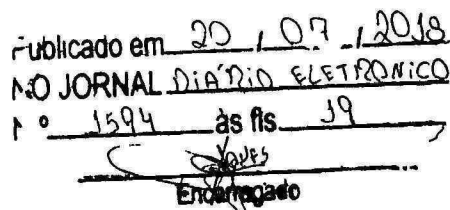 Publicado em 20 / 07 / 2018
NO JORNAL DIÁRIO ELETRONICO
Nº 1594 às fls 19
Encarregado